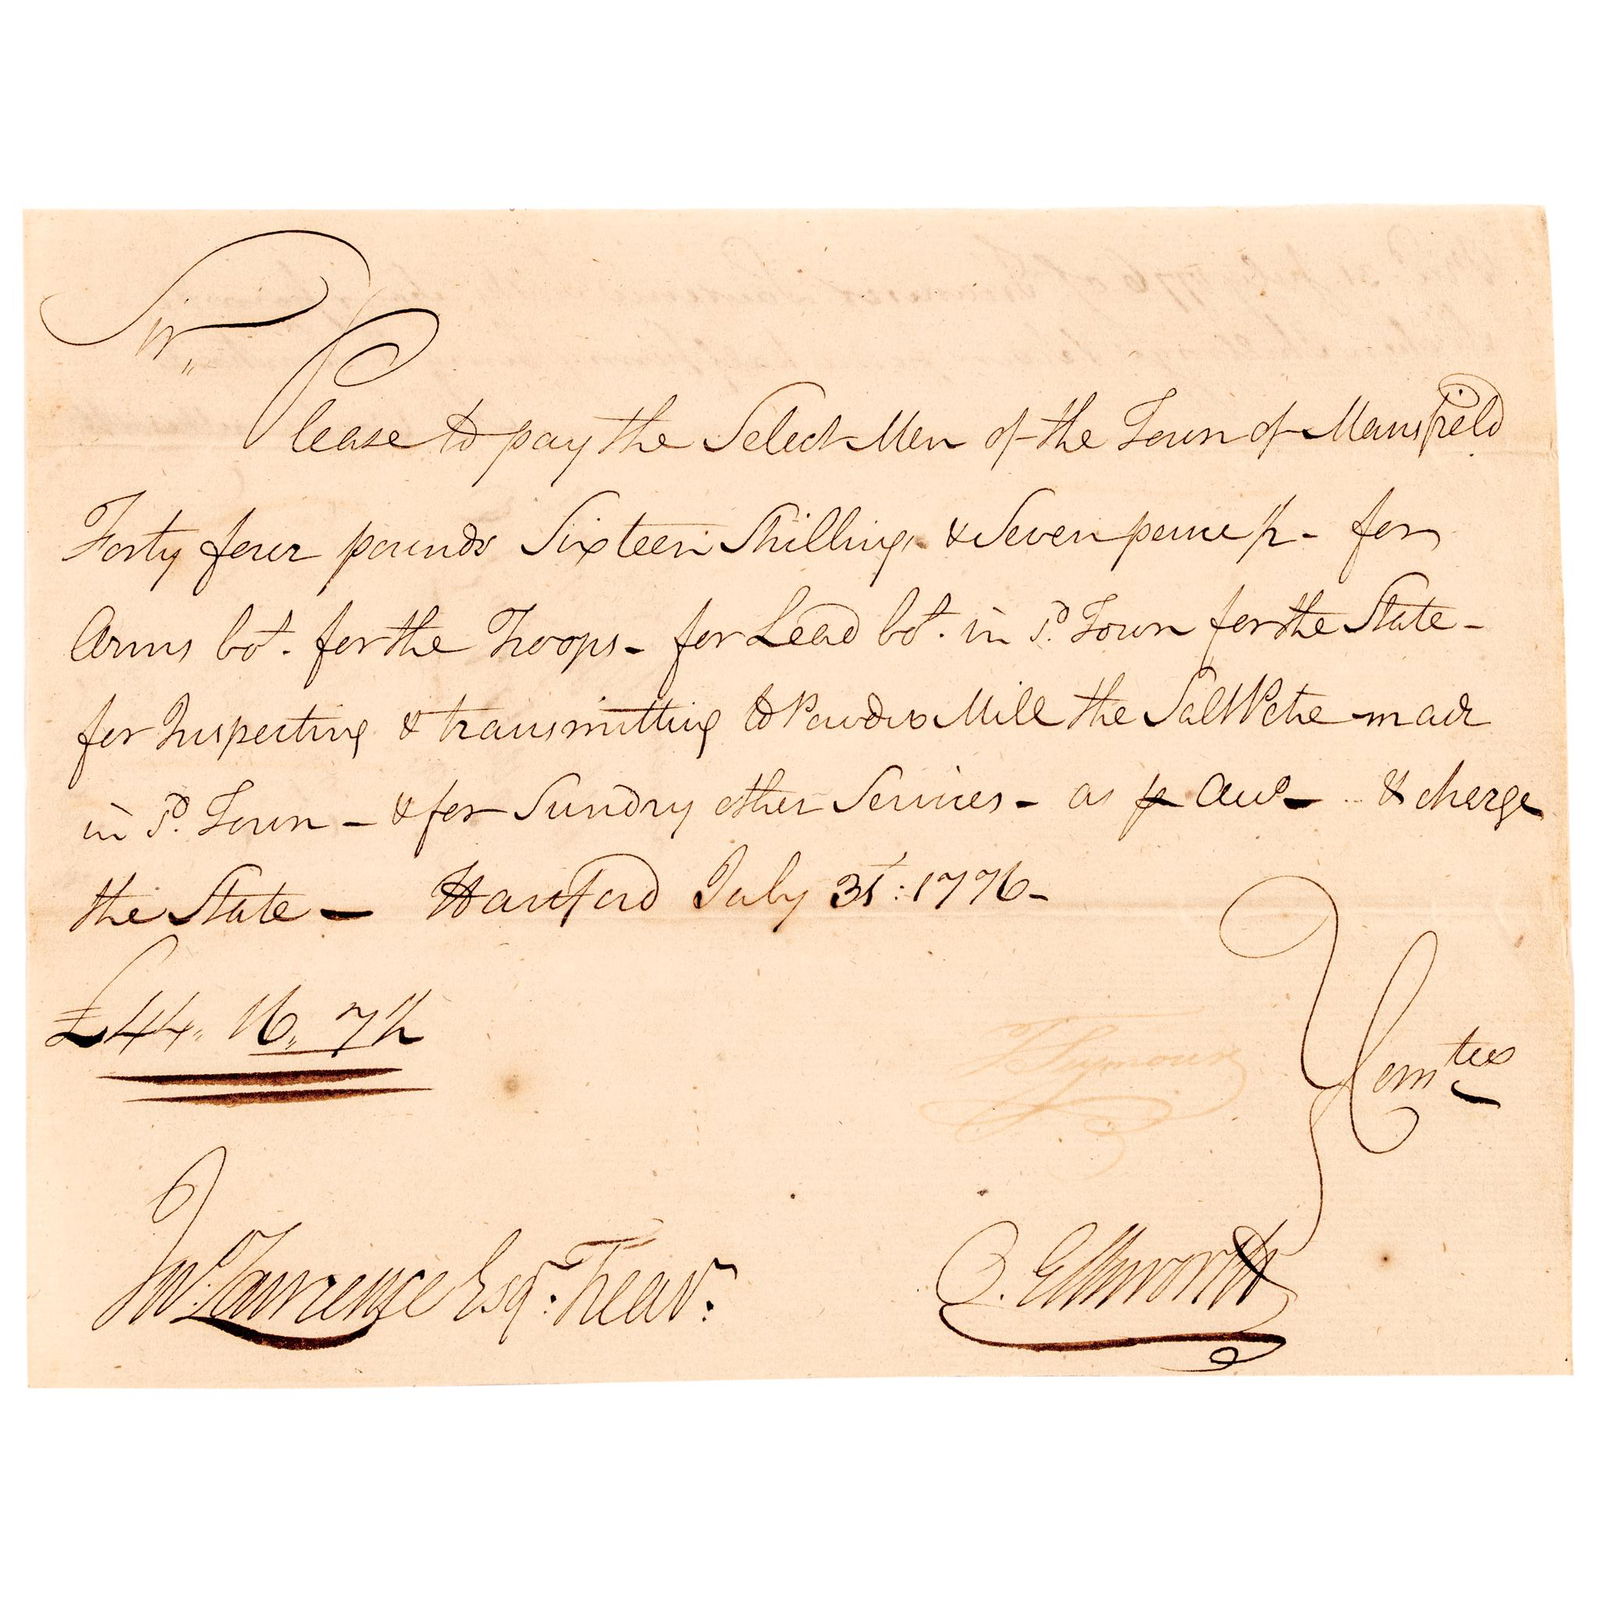 Sir,,
Please to pay the Select Men of the Town of Mansfield
Forty four pounds Sixteen Shillings & Seven pence ½ - for
Arms bot. for the Troops - for Lead bot. in sd. Town for the State -
for Inspecting & transmitting to Powder Mill the Salt Petre made
in sd. Town - & for Sundry other Services - as pr Acct - & charge
the State - Hartford July 31st: 1776 -
£44,, 16,, 7½
T Seymour
Comtee
Jno. Lawrence Esqr. Treasr.
O. Ellsworth